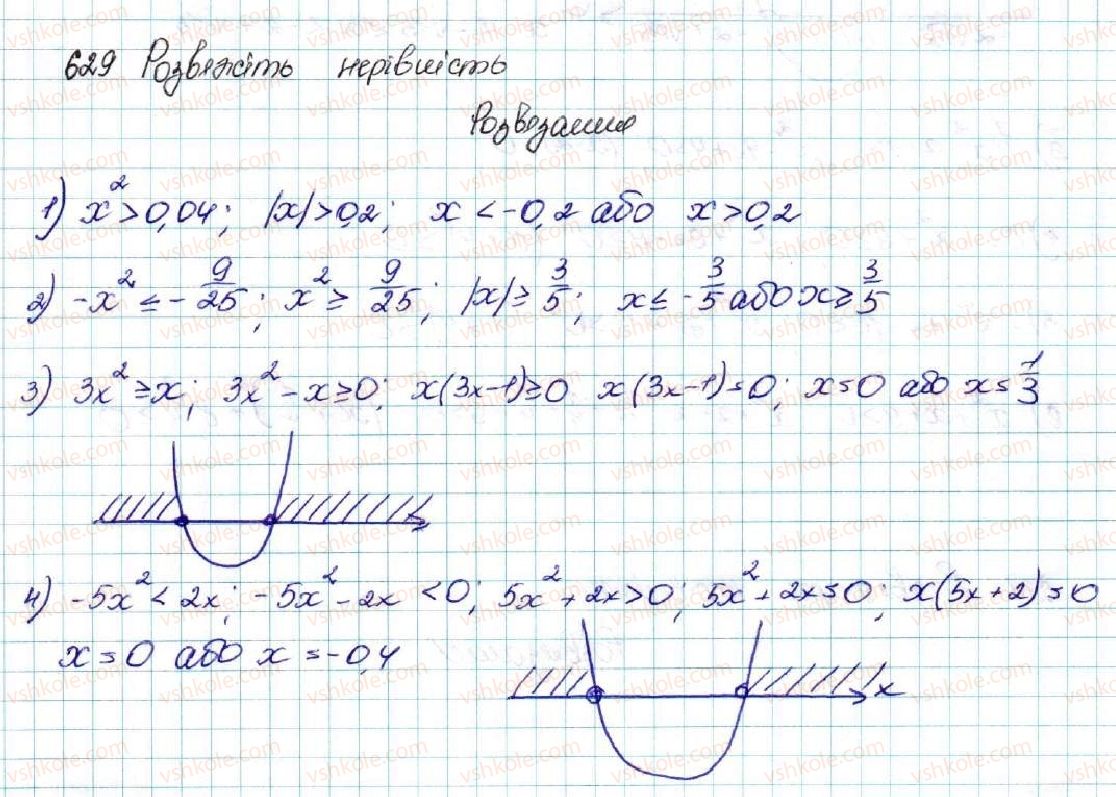 629 Розвяжіть нерівність
Розвязання
1) x² > 0,04; |x| > 0,2; x < -0,2 або x > 0,2
2) -x² ≤ -9/25; x² ≥ 9/25; |x| ≥ 3/5; x ≤ -3/5 або x ≥ 3/5
3) 3x² ≥ x; 3x² - x ≥ 0; x(3x-1) ≥ 0 x(3x-1) = 0; x = 0 або x = 1/3
4) -5x² < 2x; -5x² - 2x < 0; 5x² + 2x > 0; 5x² + 2x = 0; x(5x+2) = 0
x = 0 або x = -0,4
x
vshkole.com